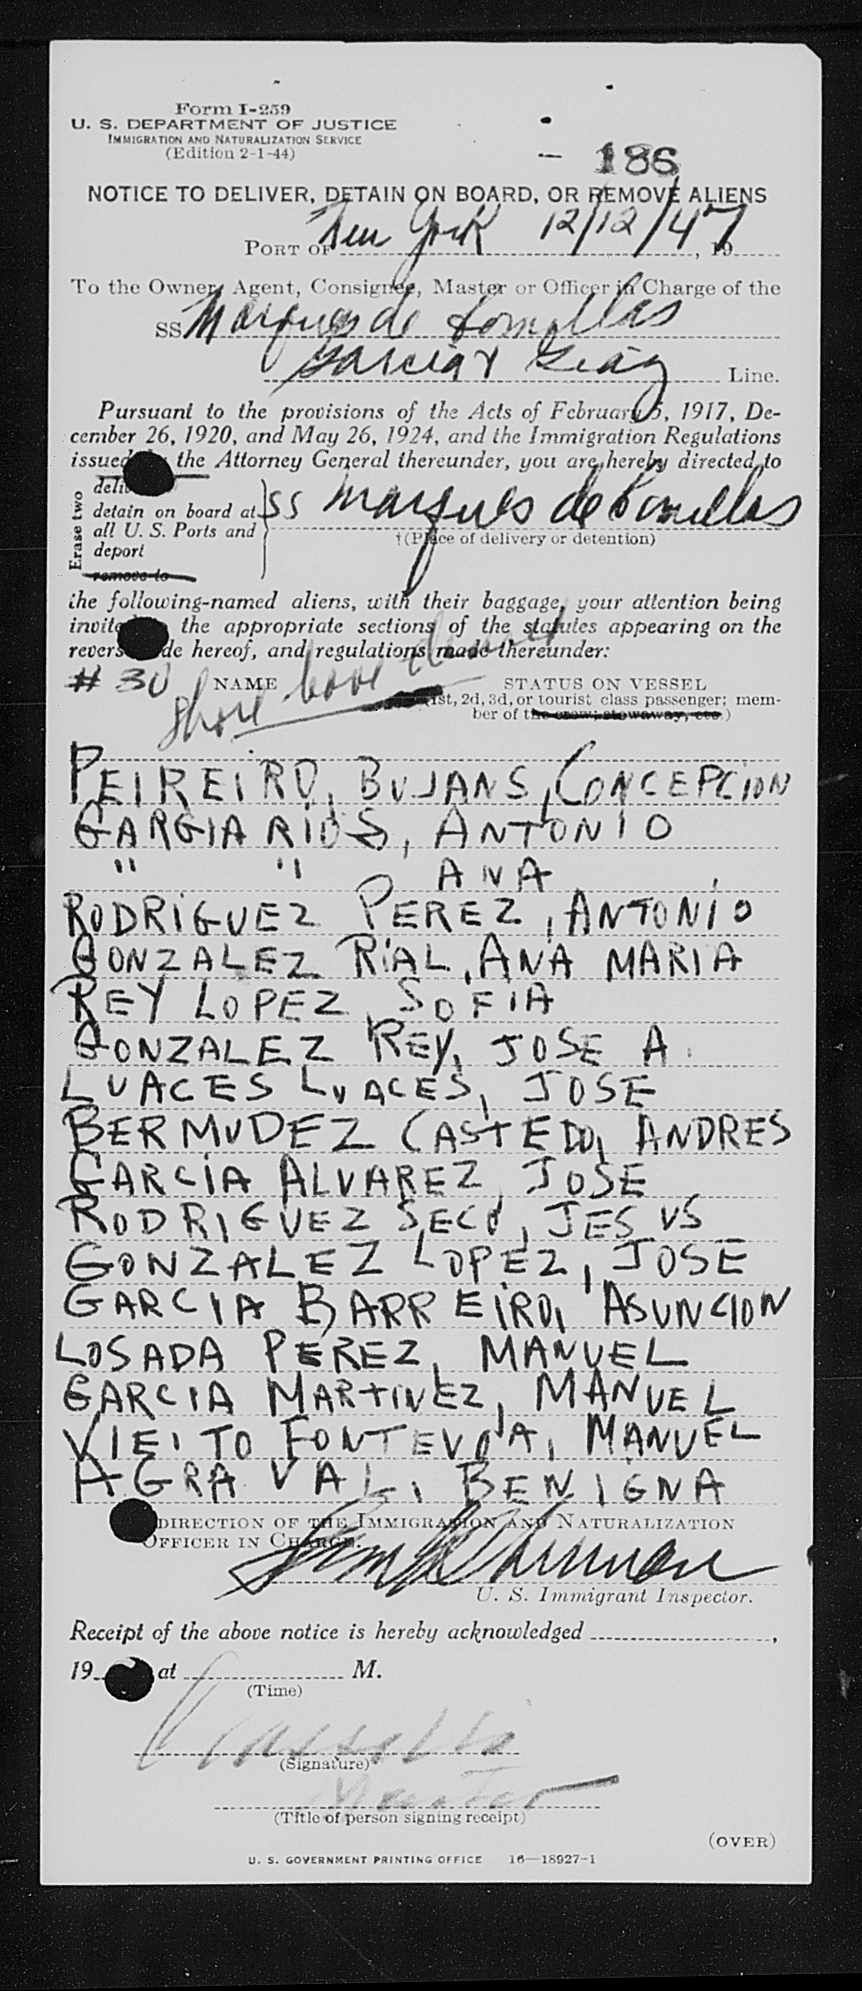 Form I-259
U. S. DEPARTMENT OF JUSTICE
IMMIGRATION AND NATURALIZATION SERVICE
(Edition 2-1-44)
- 186
NOTICE TO DELIVER, DETAIN ON BOARD, OR REMOVE ALIENS
PORT OF New York 12/12/47, 19
To the Owner, Agent, Consignee, Master or Officer in Charge of the
SS Marques de Comillas
Garcia & Diaz Line.
Pursuant to the provisions of the Acts of February 5, 1917, De-
cember 26, 1920, and May 26, 1924, and the Immigration Regulations
issued the Attorney General thereunder, you are hereby directed to
Erase two
detain on board at SS Marques de Comillas
all U. S. Ports and †(Place of delivery or detention)
deport
remove to
the following-named aliens, with their baggage, your attention being
the appropriate sections of the statutes appearing on the
hereof, and regulations made thereunder:
# 30 NAME STATUS ON VESSEL
Shore leave denied
(1st, 2d, 3d, or tourist class passenger; mem-
ber of the crew; stowaway, etc.)
PEIREIRO, BUJANS, CONCEPCION
GARGIA RIOS, ANTONIO
" " ANA
RODRIGUEZ PEREZ, ANTONIO
GONZALEZ RIAL, ANA MARIA
REY LOPEZ, SOFIA
GONZALEZ REY, JOSE A.
LUACES LUACES, JOSE
BERMUDEZ CASTEDO, ANDRES
GARCIA ALVAREZ, JOSE
RODRIGUEZ SECO, JESUS
GONZALEZ LOPEZ, JOSE
GARCIA BARREIRO, ASUNCION
LOSADA PEREZ, MANUEL
GARCIA MARTINEZ, MANUEL
VIEITO FONTEVOA, MANUEL
AGRA VAL, BENIGNA
DIRECTION OF THE IMMIGRATION AND NATURALIZATION
OFFICER IN CHARGE.
U. S. Immigrant Inspector.
Receipt of the above notice is hereby acknowledged ,
19 at M.
(Time)
(Signature)
Master
(Title of person signing receipt)
(OVER)
U. S. GOVERNMENT PRINTING OFFICE 16—18927-1